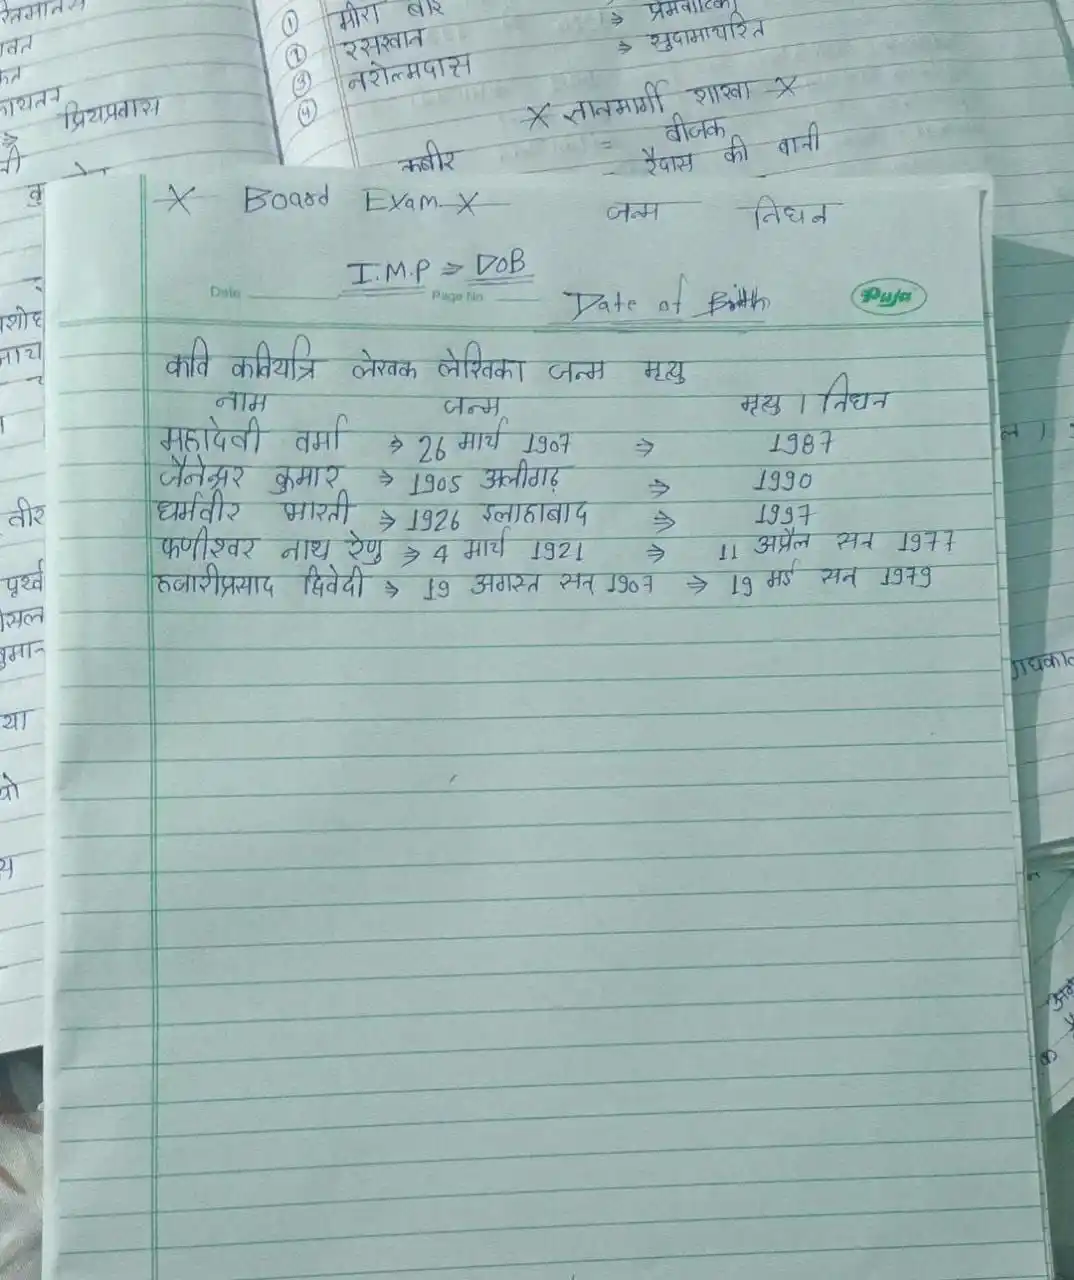 ① मीरा बाई
② रसखान ⇒ प्रेमवाटिका
③ नरोत्मदास ⇒ सुदामाचरित
④
प्रियप्रवास
X ज्ञानमार्गी शाखा X
कबीर = बीजक
रैदास की बानी
X Board Exam X जन्म निधन
I.M.P ⇒ DOB
Date Page No. Date of Birth Puja
कवि कवियत्रि लेखक लेखिका जन्म मृत्यु
नाम जन्म मृत्यु । निधन
महादेवी वर्मा ⇒ 26 मार्च 1907 ⇒ 1987
जैनेन्द्र कुमार ⇒ 1905 अलीगढ़ ⇒ 1990
धर्मवीर भारती ⇒ 1926 इलाहाबाद ⇒ 1997
फणीश्वर नाथ रेणु ⇒ 4 मार्च 1921 ⇒ 11 अप्रैल सन् 1977
हजारीप्रसाद द्विवेदी ⇒ 19 अगस्त सन् 1907 ⇒ 19 मई सन 1979